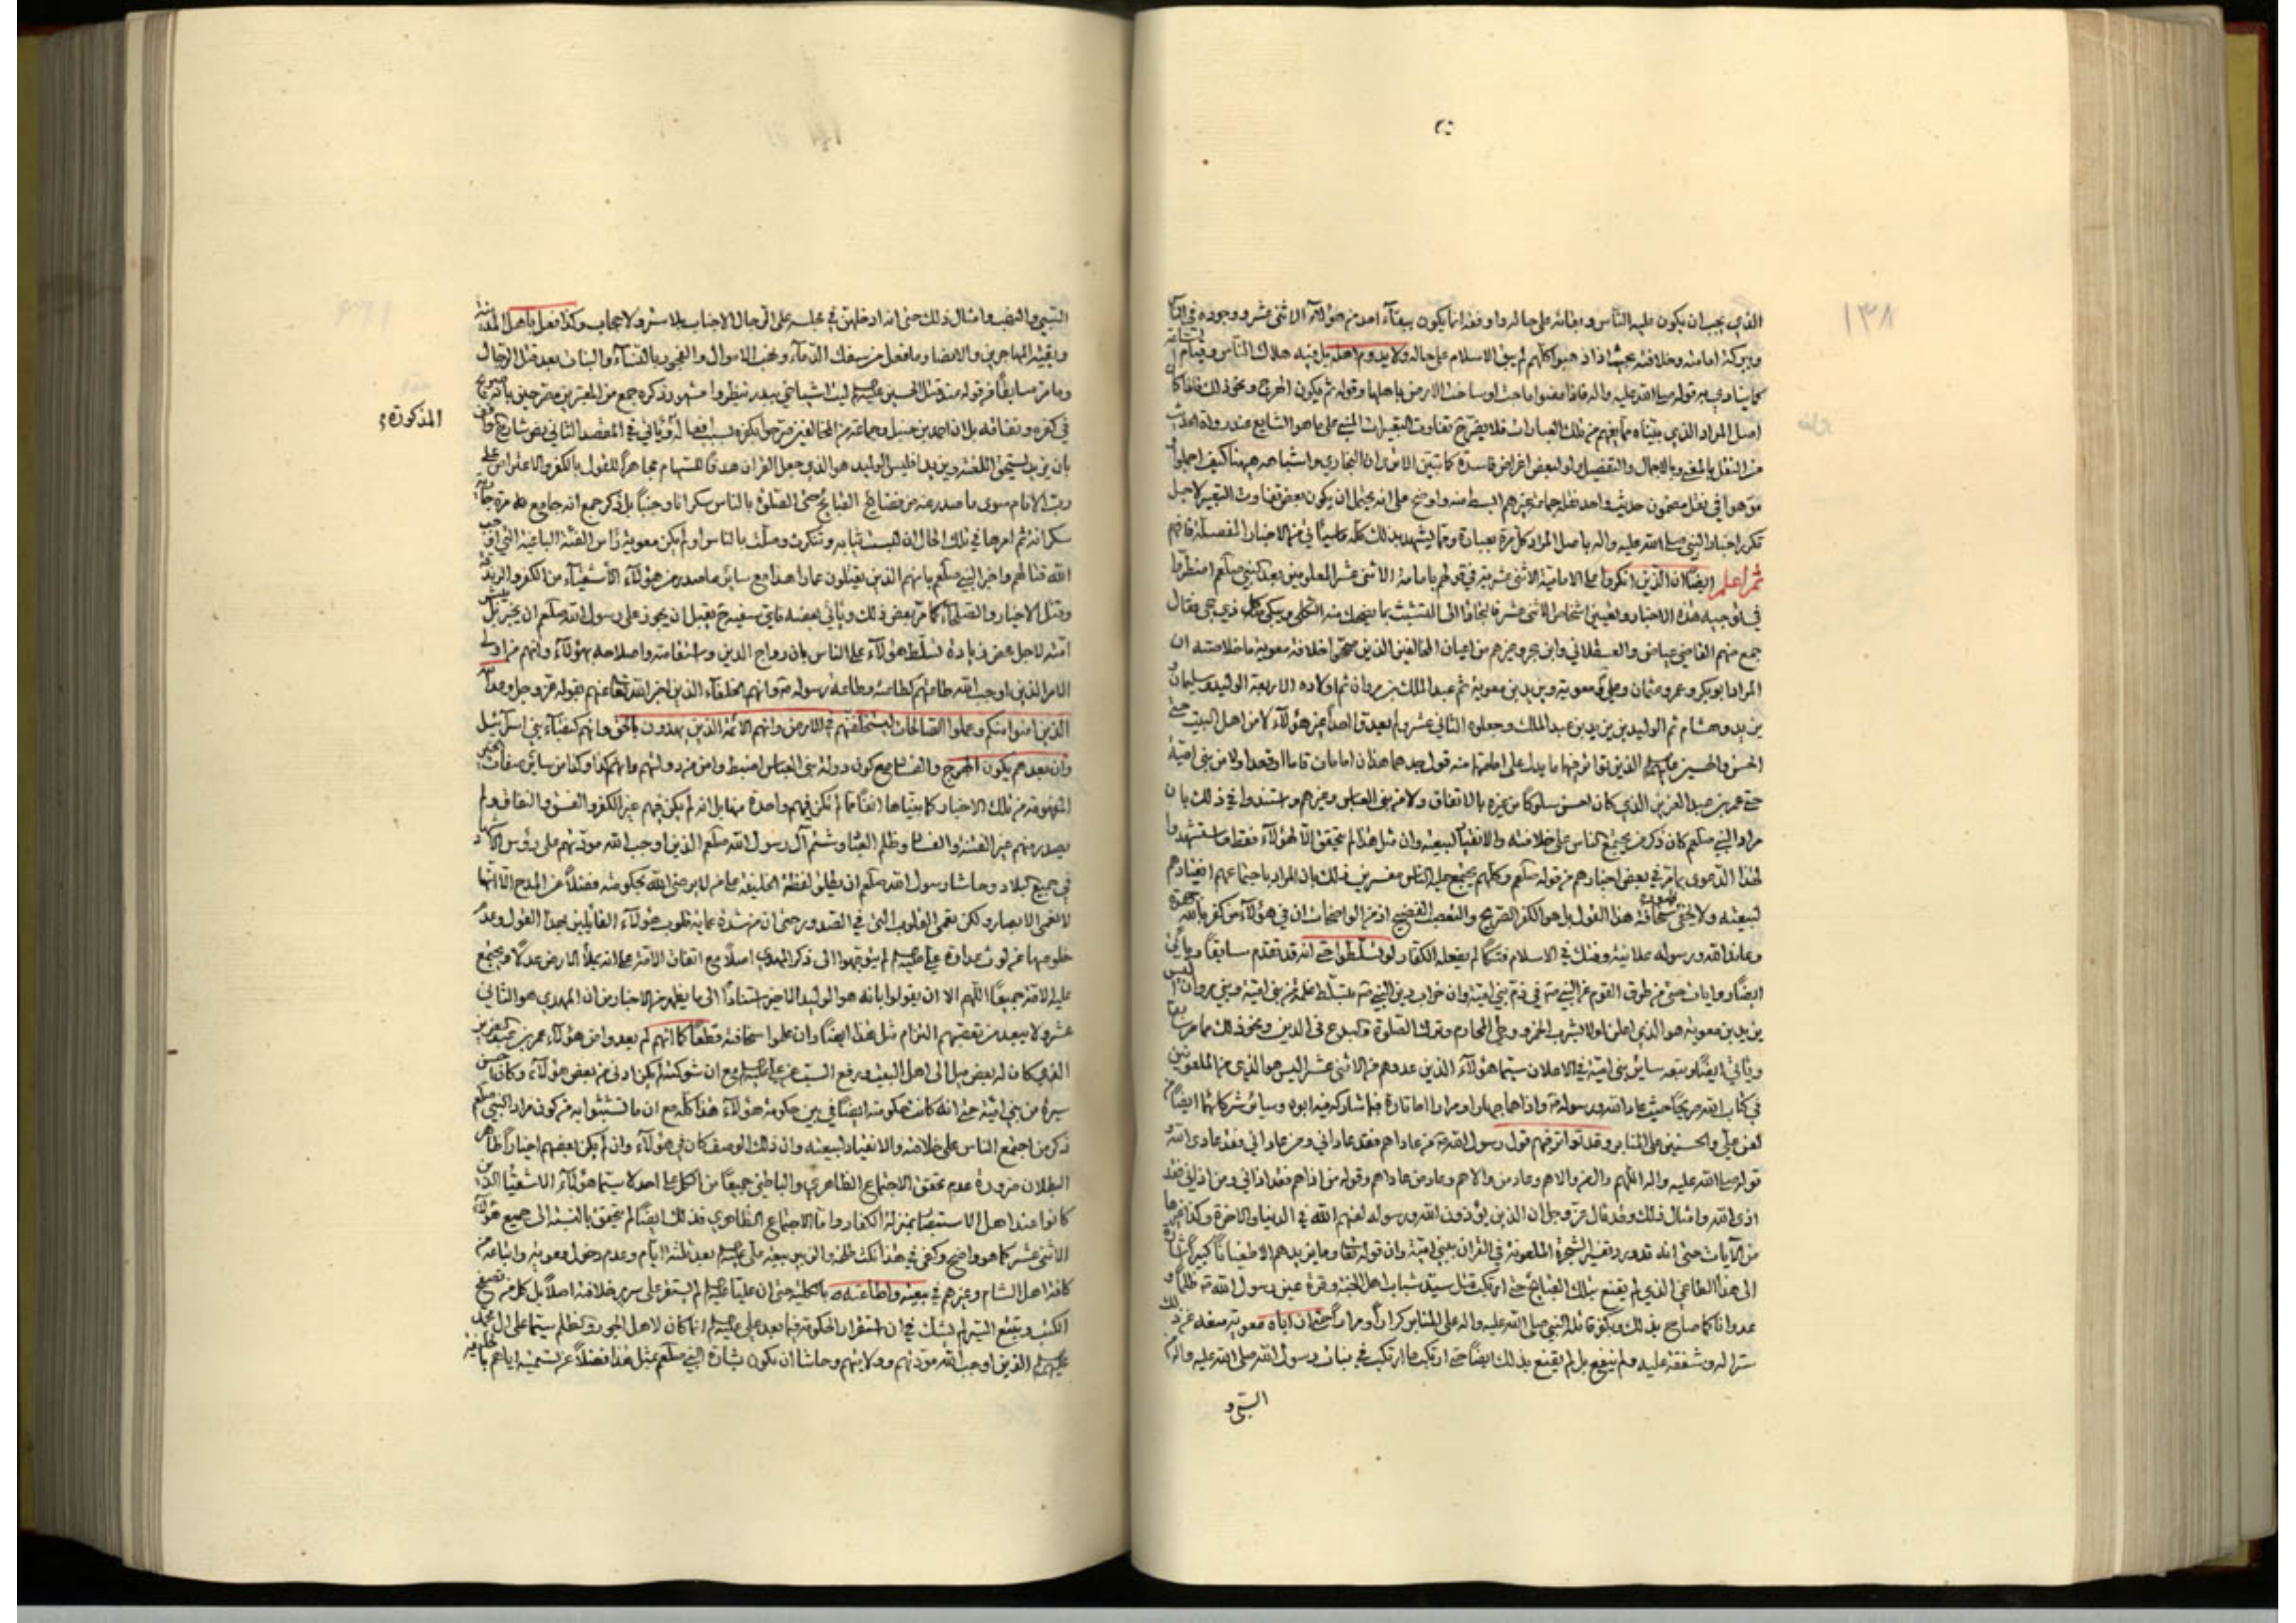 ١٣٨
الذي يجب ان يكون عليه الناس وابقائه على حاله وارفعه انما يكون ببقاء احد من هؤلاء الاثنى عشر ووجوده في الناس
وببركة امامته وخلافته بحيث اذا ذهبوا كلهم لم يبق الاسلام على حاله ولا يدوم اهله بل فيه هلاك الناس وقيام الساعة
كما ينادي به قوله صلى الله عليه واله فاذا مضوا ماجت او ساخت الارض باهلها وقوله ثم يكون الهرج ونحو ذلك فاذا كان
اصل المراد الذي بيناه مما يفهم من تلك العبارات فلا يضر ح تفاوت التعبيرات المبني على ما هو الشايع عند رواة الحديث
من النقل بالمعنى وبالاجمال والتفصيل او لبعض اغراض فاسدة كما تبين الا ترى ان البخاري واشباهه ههنا كيف اجملوا
موهوا في نقل مضمون حديث واحد نقله جماعة غيرهم ابسط منه واوضح على انه يحتمل ان يكون بعض تفاوت التعبير لاجل
تكرر اخبار النبي صلى الله عليه واله باصل المراد كل مرة بعبارة ومما يشهد بذلك كله ما سيأتي من الاخبار المفصلة فافهم
ثم اعلم ايضا ان الذين انكروا على الامامية الاثنى عشرية في قولهم بامامة الاثنى عشر المعلومين بعد النبي صلعم اضطربوا
في توجيه هذه الاخبار وتعيين اشخاص الاثنى عشر فالتجاؤا الى التشبث بما يضحك منه الثكلى ويبكي كل ذي حجى فقال
جمع منهم القاضي عياض والعسقلاني وابن حجر وغيرهم من اعيان المخالفين الذين صححوا خلافة معوية ما خلاصته ان
المراد ابو بكر وعمر وعثمان وعلي ومعوية ويزيد بن معوية ثم عبد الملك بن مروان ثم اولاده الاربعة الوليد وسليمان و
يزيد وهشام ثم الوليد بن يزيد بن عبد الملك وجعلوه الثاني عشر ولم يعدوا احدا غير هؤلاء لا من اهل البيت حتى
الحسن والحسين عليهما الذين تواتر فيهما ما يدل على امامتهما منه قول جدهما هذان امامان قاما او قعدا ولا من بني امية
حتى عمر بن عبد العزيز الذي كان احسن سلوكا من غيره بالاتفاق ولا من بني العباس وغيرهم واستندوا في ذلك بان
مراد النبي صلعم كان ذكر من يجتمع الناس على خلافته والانقياد لبيعته وان مثل هذا لم يتحقق الا لهؤلاء فقط واستشهدوا
لهذا الدعوى بما مر في بعض اخبارهم من قوله صلعم وكلهم يجتمع عليه الناس مفسرين ذلك بان المراد باجتماعهم انقيادهم
لبيعته ولا يخفى سخافة هذا القول بل هو الكفر الصريح والتعصب الفضيح اذ من الواضحات ان في هؤلاء من كفر بالله
وعاند الله ورسوله علانية وهتك في الاسلام هتكا لم يفعله الكفار لو تسلطوا حتى انه قد تقدم سابقا ويأتي
ايضا روايات حتى من طرق القوم عن النبي ص في ذم بني امية وان خراب دين النبي ص بتسلط غلمة من بني امية وبني مروان اليس
يزيد بن معوية هو الذي اعلن اولا بشرب الخمر ووطي المحارم وترك الصلوة والبدع في الدين ونحو ذلك مما مر سابقا
ويأتي ايضا وتبعه سائر بني امية في الاعلان سيما هؤلاء الذين عدوهم من الاثنى عشر اليس هو الذي من الملعونين
في كتاب الله صريحا حيث عاد الله ورسوله ص واذاهما جهارا ومرارا اما تارة فبما شارك فيه ابوه وسائر شركائهما ايضا من
لعن علي والحسنين على المنابر وقد تواتر فيهم قول رسول الله ص من عاداهم فقد عاداني ومن عاداني فقد عادى الله
قوله صلى الله عليه واله اللهم وال من والاهم وعاد من عاداهم وقوله من اذاهم فقد اذاني ومن اذاني فقد
اذى الله وامثال ذلك وقد قال عز وجل ان الذين يؤذون الله ورسوله لعنهم الله في الدنيا والاخرة وكذا غيرها
من الآيات حتى انه قد ورد تفسير الشجرة الملعونة في القران ببني امية وان قوله تعالى وما يزيدهم الا طغيانا كبيرا اشارة
الى هذا الطاغي الذي لم يقنع بتلك القبائح حتى ارتكب قتل سيد شباب اهل الجنة وقرة عين رسول الله ص ظلما و
عدوانا كما صاح بذلك وبكفر قاتله النبي صلى الله عليه واله على المنابر كرارا ومرارا حتى ان اباه معوية منعه عن ذلك
سترا له وشفقة عليه ولم ينفع بل لم يقنع بذلك ايضا حتى ارتكب ما ارتكب في بنات رسول الله صلى الله عليه واله من
السبي و
السبي والنهب وامثال ذلك حتى انه ادخلهن في مجلسه على الرجال الاجانب بلا ستر ولا حجاب وكذا فعل باهل المدينة
وبقية المهاجرين والانصار ما فعل من سفك الدماء ونهب الاموال والفجور بالنساء والبنات بعد قتل الرجال
وما مر سابقا من قوله عند قتل الحسين عليه السلم ليت اشياخي ببدر مشهور ذكره جمع من المعتبرين مصرحين بانه صريح
في كفره ونفاقه بل ان احمد بن حنبل وجماعة من المخالفين صرحوا بكفره بسبب افعاله ويأتي في المقصد الثاني
بان يزيد يستحق اللعنة ويزيد اوليس الوليد هو الذي جعل القران هدفا للسهام مجاهرا للقول بالكفر والاعتراض على
رب الانام سوى ما صدر عنه من فضايح القبائح حتى الصلوة بالناس سكرانا وجنبا بل ذكر جمع انه جامع مرة جارية
سكرانة ثم امرها في تلك الحال ان لبست ثيابه وتنكرت وصلت بالناس اولم يكن معوية رأس الفئة الباغية التي اوجب
الله قتالهم واخبر النبي صلعم بانهم الذين يقتلون عمارا هذا مع سائر ما صدر من هؤلاء الاشقياء من الكفر والزندقة
وقتل الاخيار والصلحاء كما مر بعض ذلك ويأتي بعضه فاي سفيه ح يقبل ان يجوز على رسول الله صلعم ان يخبر بل يبشر
امته لاجل محض زيادة تسلط هؤلاء على الناس بان رواج الدين واستقامته واصلاحه بهؤلاء وانهم من اولي
الامر الذين اوجب الله طاعتهم كطاعته وطاعة رسوله ص وانهم الخلفاء الذين اخبر الله تعالى عنهم بقوله عز وجل وعد الله
الذين امنوا منكم وعملوا الصالحات ليستخلفنهم في الارض وانهم الائمة الذين يهدون بالحق وانهم كنقباء بني اسرائيل
وان بعدهم يكون الهرج والفساد مع كون دولة بني العباس اضبط وامن من دولتهم وانهم كذا وكذا من سائر صفات الخير
المفهومة من تلك الاخبار كما بيناها انفا مما لم تكن فيهم واحدة منها بل انه لم يكن فيهم غير الكفر والفسق والنفاق ولم
يصدر منهم غير الفتنة والفساد وظلم العباد وشتم آل رسول الله صلعم الذين اوجب الله مودتهم على رؤس الاشهاد
في جميع البلاد وحاشا رسول الله صلعم ان يطلق لفظة الخليفة على من لا يرضى الله بحكومته فضلا عن المدح الا انها
لا تعمى الابصار ولكن تعمى القلوب التي في الصدور حتى ان من شدة عماية قلوب هؤلاء القائلين بهذا القول وعدم
خلوصها عن لوث عداوة علي عليه السلم لم يتوجهوا الى ذكر المهدي اصلا مع اتفاق الامة على انه يملأ الارض عدلا ويجتمع
عليه الامة جميعا اللهم الا ان يقولوا بانه هو الوليد الاخير استنادا الى ما يظهر من الاخبار من ان المهدي هو الثاني
عشر ولا يبعد من تعصبهم التزام مثل هذا ايضا وان علموا سخافته قطعا كما انهم لم يعدوا من هؤلاء عمر بن عبد العزيز
الذي كان له بعض ميل الى اهل البيت ورفع السب عن علي عليه السلم مع ان شوكته لم يكن ادنى من بعض هؤلاء وكان احسن
سيرة من بني امية حتى انه كانت حكومته ايضا في بين حكومة هؤلاء هذا كله مع ان ما تشبثوا به من كون مراد النبي صلعم
ذكر من اجتمع الناس على خلافته والانقياد لبيعته وان ذلك الوصف كان في هؤلاء وان لم يكن بعضهم اخيارا ظاهر
البطلان ضرورة عدم تحقق الاجتماع الظاهري والباطني جميعا من الكل على احد لا سيما هؤلاء الاشقياء الذين
كانوا عند اهل الاستبصار بمنزلة الكفار واما الاجتماع الظاهري فذلك ايضا لم يتحقق بالنسبة الى جميع هؤلاء
الاثنى عشر كما هو واضح وكفى في هذا نكث طلحة والزبير بيعة علي عليه السلم بعد ثلثة ايام وعدم دخول معوية واتباعه من
كافة اهل الشام وغيرهم في بيعته واطاعته بالكلية حتى ان عليا عليه السلم لم يستقر على سرير خلافته اصلا بل كل من تصفح
الكتب وتتبع السير لم يشك في ان استقرار الحكومة فيما بعد علي عليه السلم انما كان لاهل الجور والظلم سيما على ال محمد
عليهم السلم الذين اوجب الله مودتهم وولايتهم وحاشا ان يكون بشارة النبي صلعم بمثل هذا فضلا عن تسميته اياهم بالخليفة
المذكورة